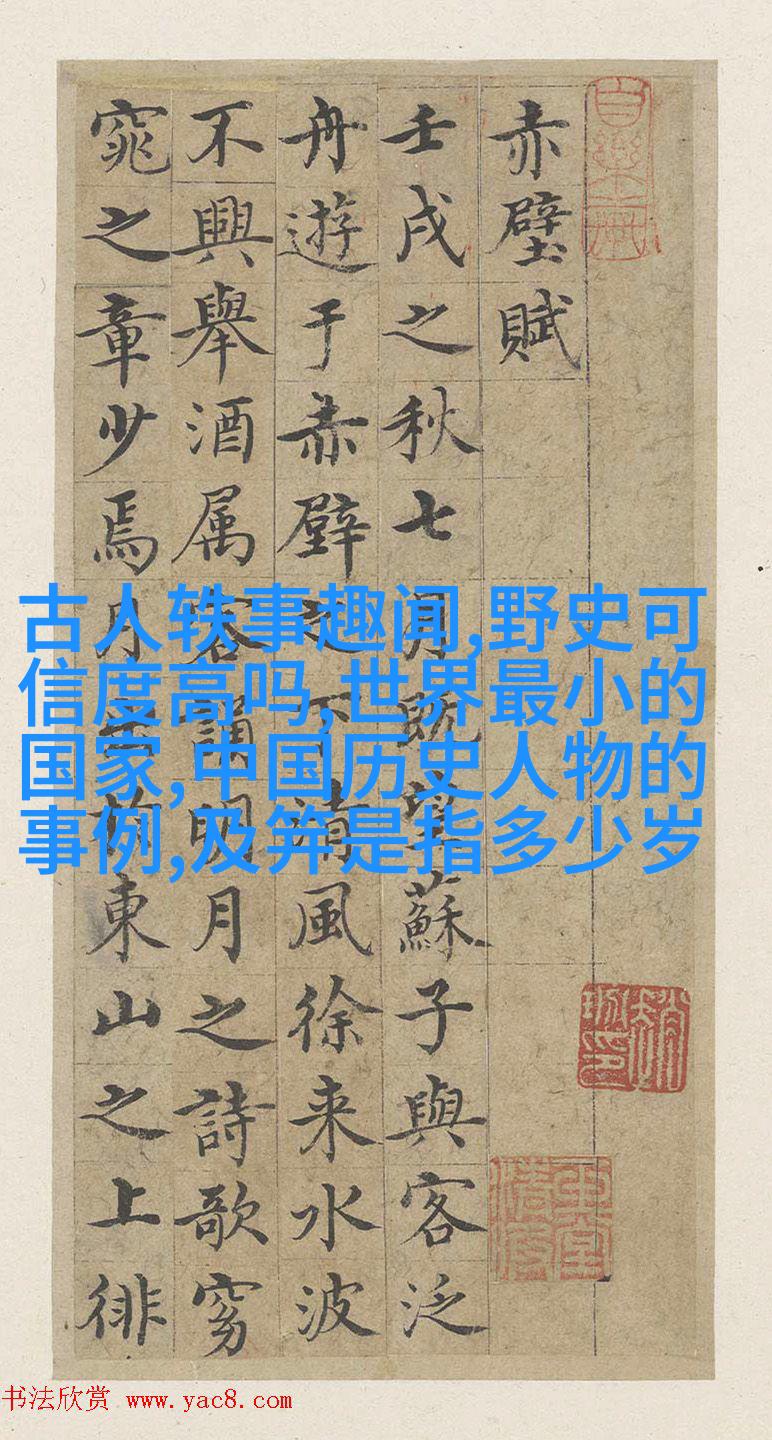 赤壁賦
壬戌之秋七月既望蘇子與客泛
舟遊于赤壁之下清風徐来水波
不興舉酒属客誦明月之詩歌窈
窕之章少焉月出於東山之上徘
古人轶事趣闻,野史可
信度高吗,世界最小的
国家,中国历史人物的
事例,及笄是指多少岁
书法欣赏 www.yac8.com